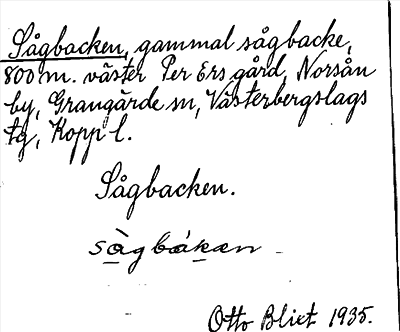 Sågbacken, gammal sågbacke,
800 m. väster Per Ers gård, Norsån
by, Grangärde sn, Västerbergslags
tg, Kopp l.
Sågbacken.
sågbakæn
Otto Blixt 1935.